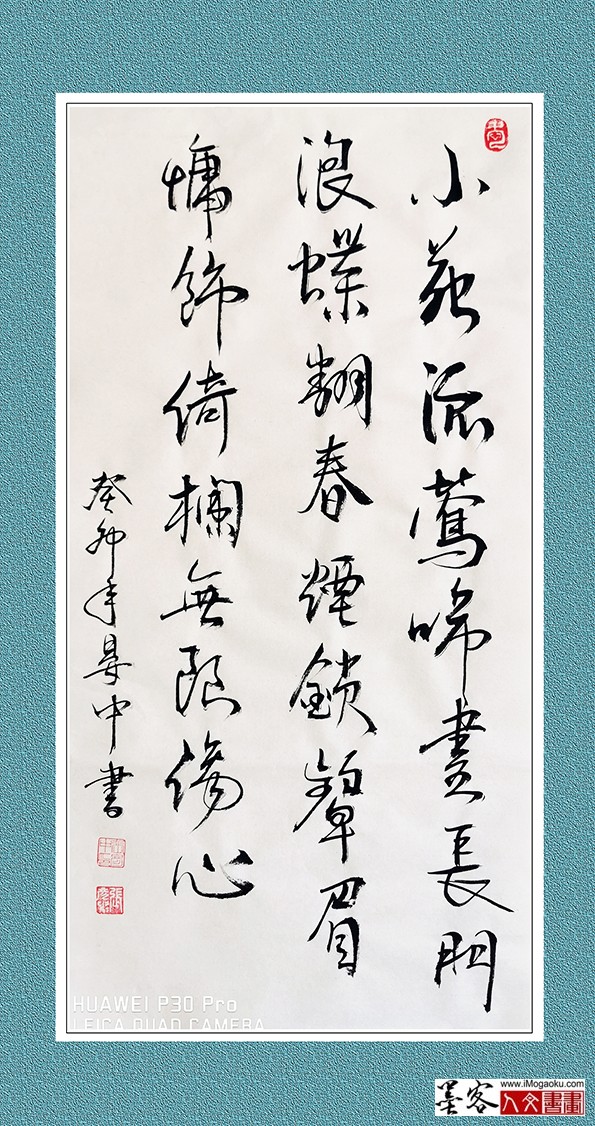 小苑流鶯啼晝長門
浪蝶翻春煙鎖顰眉
慵飾倚欄無限傷心
癸卯年晏中書
HUAWEI P30 Pro
LEICA QUAD CAMERA
墨客
www.iMogaoku.com
人文書畫